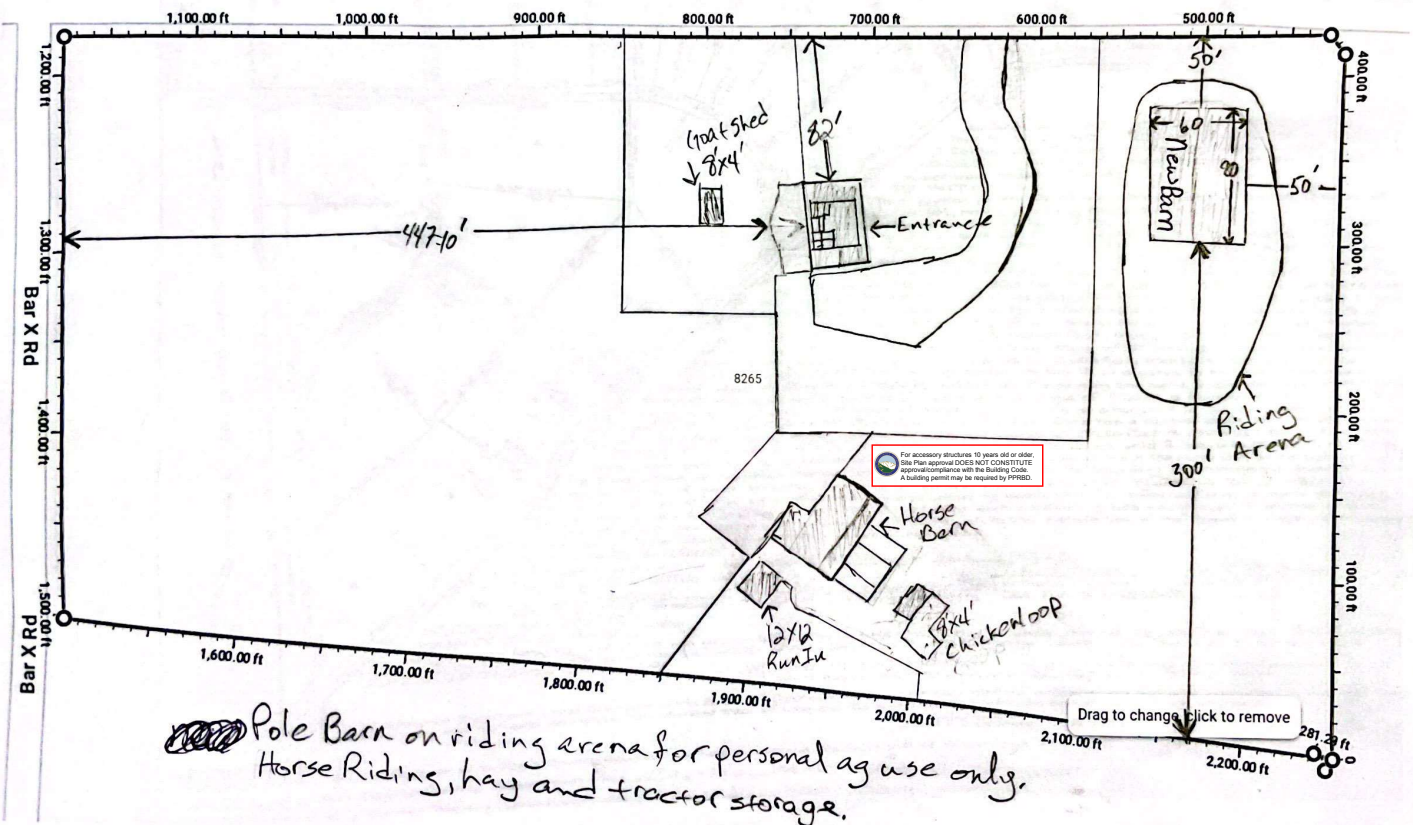 1,100.00 ft
1,000.00 ft
900.00 ft
800.00 ft
700.00 ft
600.00 ft
500.00 ft
1,200.00 ft
1,300.00 ft
1,400.00 ft
1,500.00 ft
Bar X Rd
Bar X Rd
400.00 ft
300.00 ft
200.00 ft
100.00 ft
0
50'
60
New Barn
50'
82'
Goat Shed
8'x4'
447-10'
Entrance
8265
Riding
Arena
300'
For accessory structures 10 years old or older,
Site Plan approval DOES NOT CONSTITUTE
approval/compliance with the Building Code.
A building permit may be required by PPRBD.
Horse
Barn
12x12
Run In
8x4'
1,600.00 ft
1,700.00 ft
1,800.00 ft
1,900.00 ft
2,000.00 ft
2,100.00 ft
2,200.00 ft
Drag to change, click to remove
Pole Barn on riding arena for personal ag use only.
Horse Riding, hay and tractor storage.